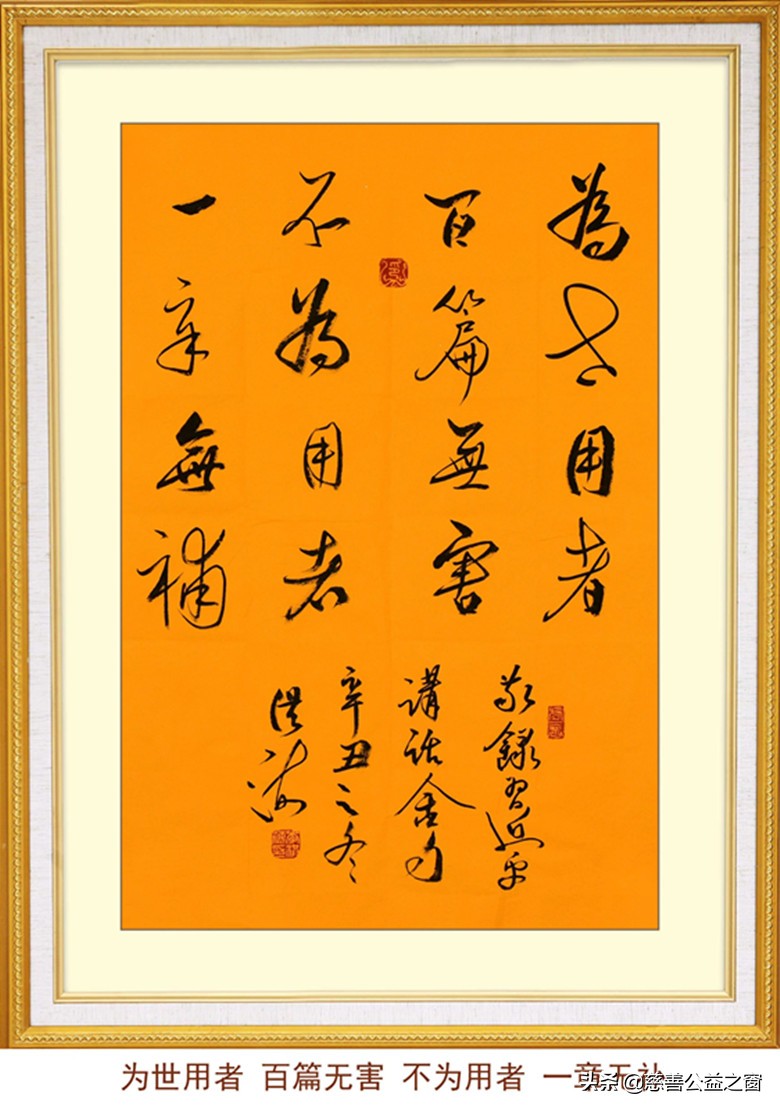 為世用者
百篇無害
不為用者
一章無補
敬錄习近平
講話金句
辛丑之冬
洪海
为世用者 百篇无害 不为用者 一章无补
头条 @慈善公益之窗